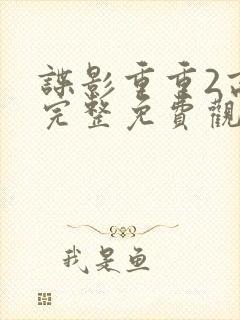 諜影重重2
完整免費觀
我是鱼